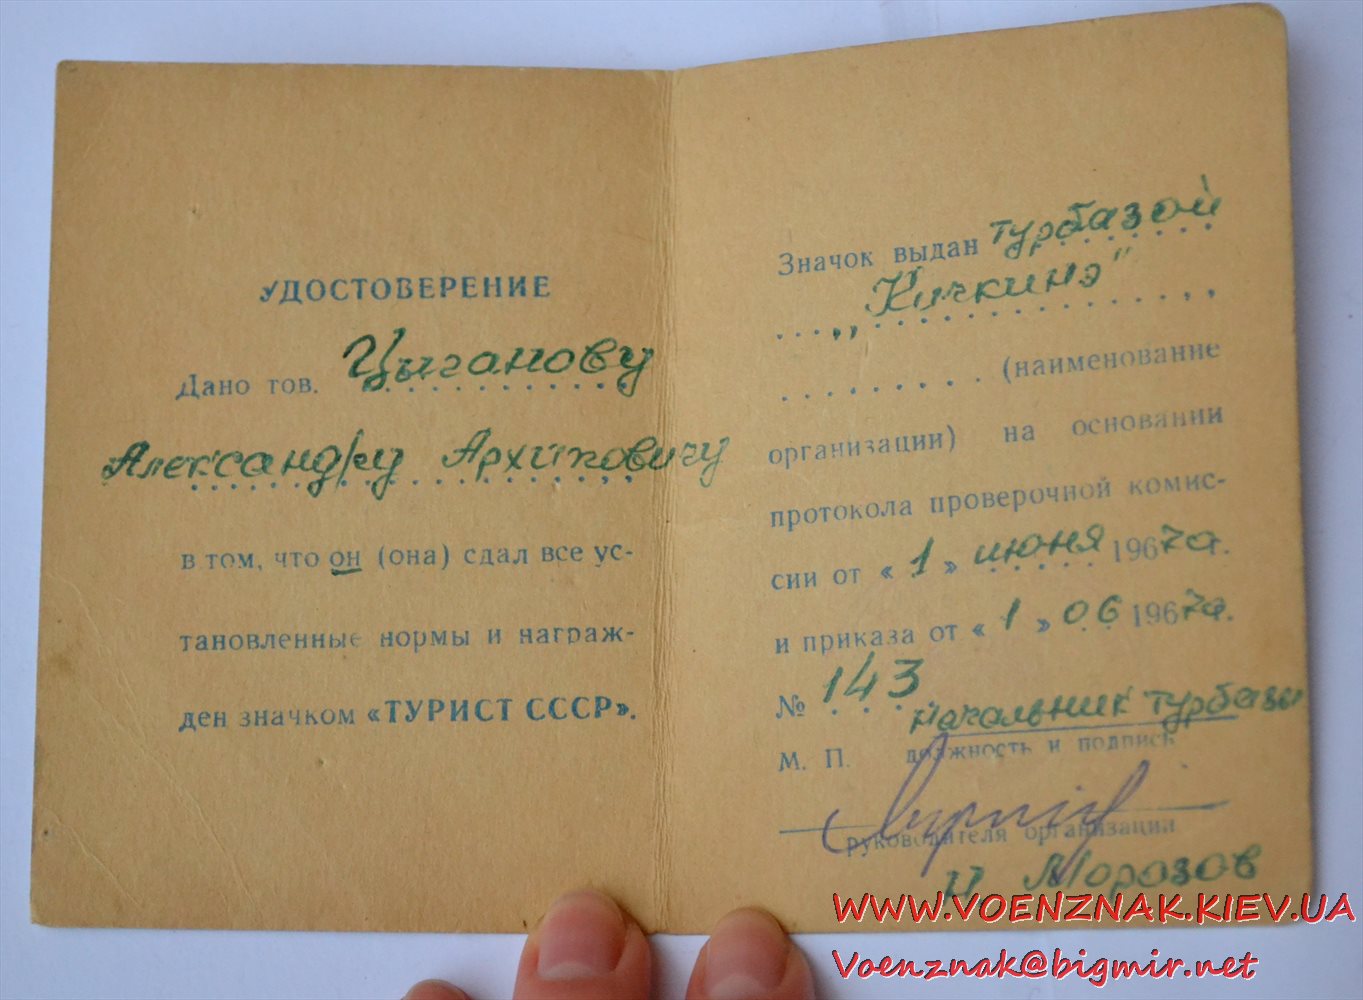 УДОСТОВЕРЕНИЕ
Дано тов. Цыганову
Александру Архиповичу
в том, что он (она) сдал все ус-
тановленные нормы и награж-
ден значком «ТУРИСТ СССР».
Значок выдан турбазой
„Кичкинэ"
(наименование
организации) на основании
протокола проверочной комис-
сии от «1» июня 1967г.
и приказа от «1» 06 1967г.
№ 143
начальник турбазы
М. П. должность и подпись
руководителя организации
Морозов
WWW.VOENZNAK.KIEV.UA
Voenznak@bigmir.net